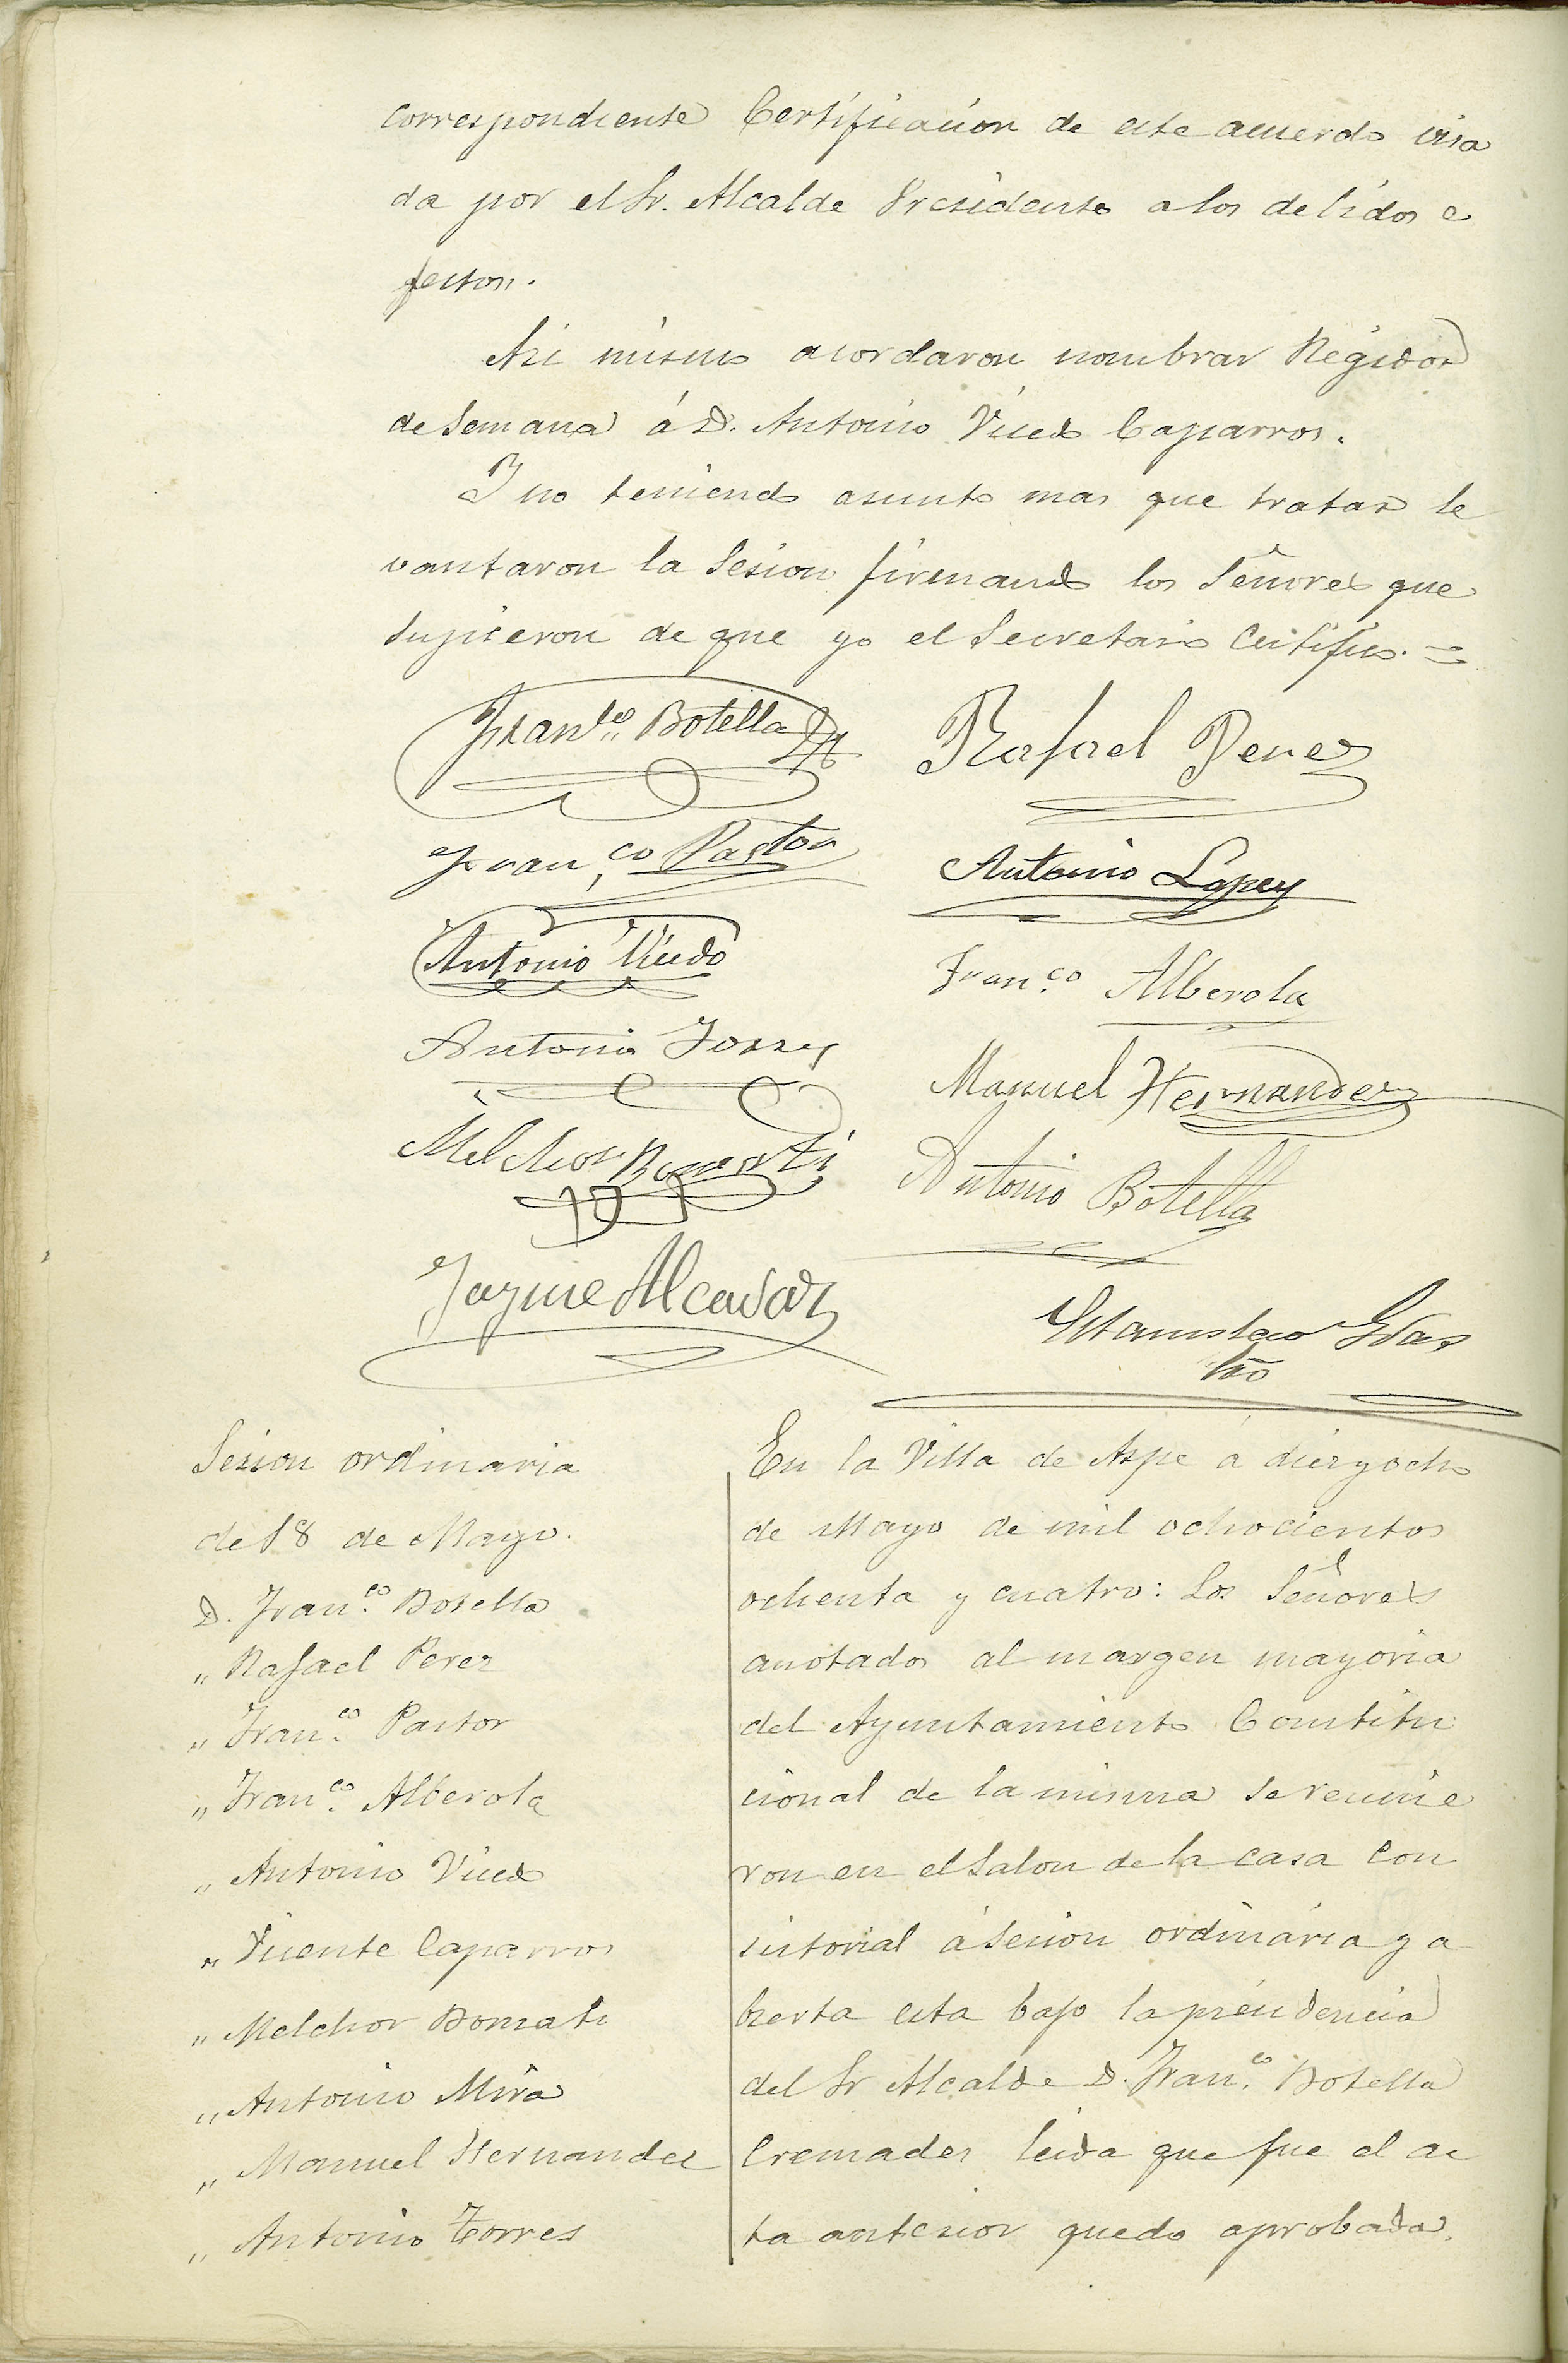 correspondiente Certificacion de este acuerdo visa
da por el Sr. Alcalde Presidente a los debidos e
fectos.
Asi mismo acordaron nombrar Regidor
de Semana á D. Antonio Vicedo Caparros.
Y no teniendo asunto mas que tratar le
vantaron la Sesion firmando los Señores que
supieron de que yo el Secretario Certifico. =
Fran.co Botella
Rafael Perez
Fran.co Pastor
Antonio Lopez
Antonio Vicedo
Fran.co Alberola
Antonio Torres
Manuel Hernandez
Melchor Bonmati
Antonio Botella
Jayme Alcaraz
Estanislao
Srio
Sesion ordinaria
de 18 de Mayo.
D. Fran.co Botella
" Rafael Perez
" Fran.co Pastor
" Fran.co Alberola
" Antonio Vicedo
" Vicente Caparros
" Melchor Bonmati
" Antonio Mira
" Manuel Hernandez
" Antonio Torres
En la Villa de Aspe á diez y ocho
de Mayo de mil ochocientos
ochenta y cuatro: Los Señores
anotados al margen mayoria
del Ayuntamiento Constitu
cional de la misma se reunie
ron en el Salon de la casa Con
sistorial á Sesion ordinaria y a
bierta esta bajo la presidencia
del Sr Alcalde D. Fran.co Botella
Cremades leida que fue el ac
ta anterior quedo aprobada.